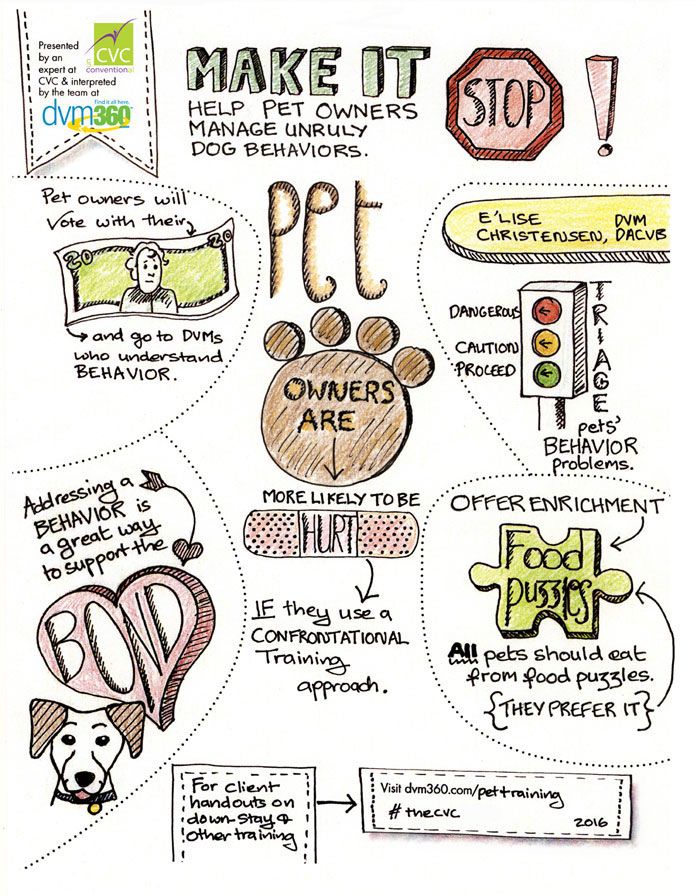 Presented
by an
expert at
CVC & interpreted
by the team at
CVC
conventional
find it all here.
dvm360
MAKE IT
STOP !
HELP PET OWNERS
MANAGE UNRULY
DOG BEHAVIORS.
Pet owners will
Vote with their
20 20
and go to DVMs
who understand
BEHAVIOR.
Pet
OWNERS
ARE
MORE LIKELY TO BE
HURT
IF they use a
CONFRONTATIONAL
Training
approach.
E'LISE DVM
CHRISTENSEN, DACVB
DANGEROUS
CAUTION
PROCEED
TRIAGE
pets'
BEHAVIOR
problems.
Addressing a
BEHAVIOR is
a great way
to support the
BOND
OFFER ENRICHMENT
Food
puzzles
All pets should eat
from food puzzles.
{THEY PREFER IT}
For client
handouts on
down-stay &
other training
Visit dvm360.com/pettraining
# thecvc
2016